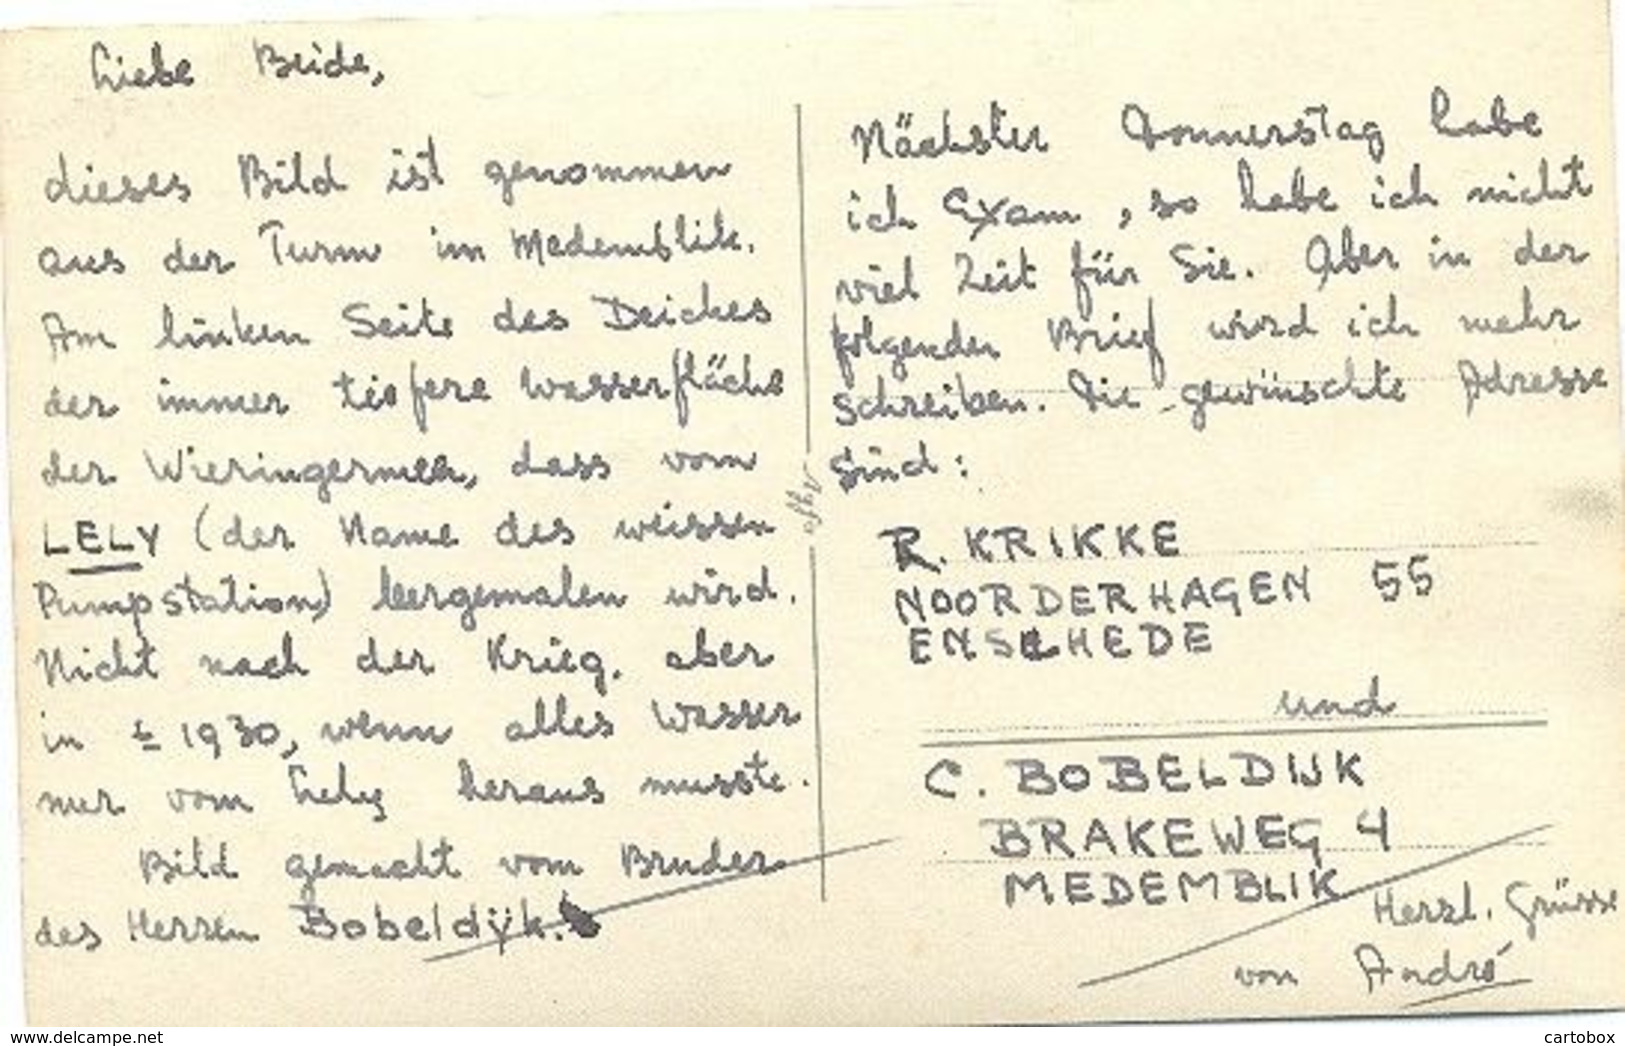 Liebe Beide,
dieses Bild ist genommen
aus der Turm im Medemblik.
Am linken Seite des Deiches
der immer tiefere Wasserfläche
der Wieringermeer, dass vom
LELY (der Name des weissen
Pumpstation) leergemalen wird.
Nicht nach der Krieg, aber
in ± 1930, wenn alles Wasser
nur vom Lely heraus musste.
Bild gemacht vom Bruder
des Herren Bobeldijk.
Agfa
Nächster Donnerstag habe
ich Exam, so habe ich nicht
viel Zeit für Sie. Aber in der
folgenden Brief wird ich mehr
schreiben. Die gewünschte Adresse
sind:
R. KRIKKE
NOORDERHAGEN 55
ENSCHEDE
und
C. BOBELDIJK
BRAKEWEG 4
MEDEMBLIK
Herzl. Grüsse
von André
www.delcampe.net
cartobox